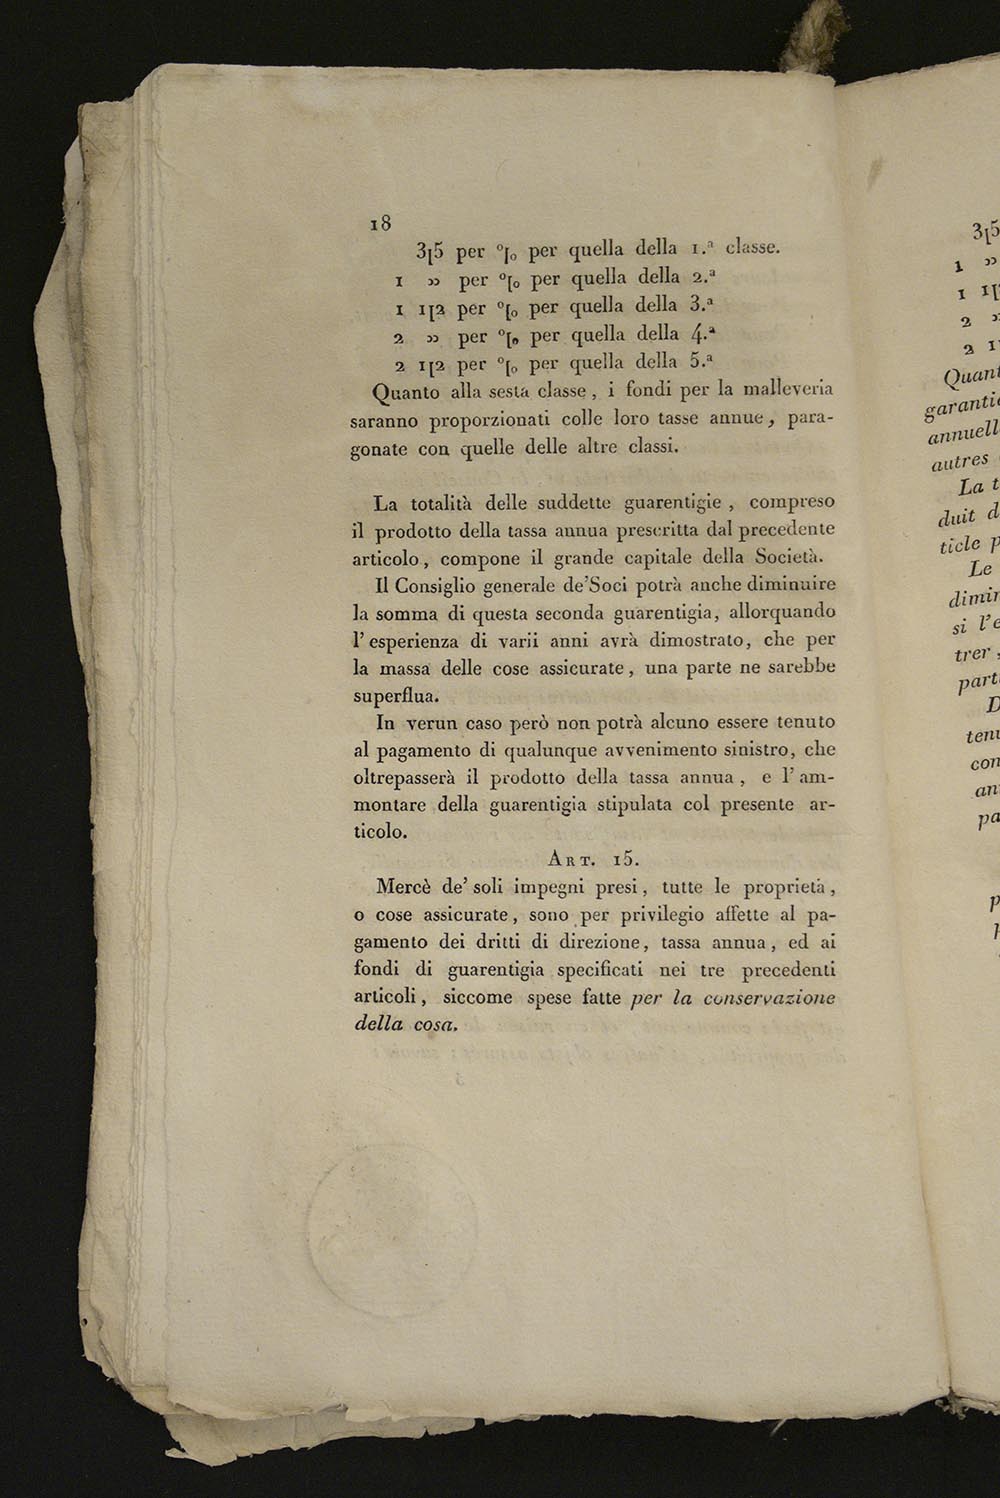 18
3[5 per º[o per quella della 1.ª classe.
1 » per º[o per quella della 2.ª
1 1[2 per º[o per quella della 3.ª
2 » per º[o per quella della 4.ª
2 1[2 per º[o per quella della 5.ª
Quanto alla sesta classe, i fondi per la malleveria
saranno proporzionati colle loro tasse annue, para-
gonate con quelle delle altre classi.
La totalità delle suddette guarentigie, compreso
il prodotto della tassa annua prescritta dal precedente
articolo, compone il grande capitale della Società.
Il Consiglio generale de' Soci potrà anche diminuire
la somma di questa seconda guarentigia, allorquando
l'esperienza di varii anni avrà dimostrato, che per
la massa delle cose assicurate, una parte ne sarebbe
superflua.
In verun caso però non potrà alcuno essere tenuto
al pagamento di qualunque avvenimento sinistro, che
oltrepasserà il prodotto della tassa annua, e l'am-
montare della guarentigia stipulata col presente ar-
ticolo.
ART. 15.
Mercè de' soli impegni presi, tutte le proprietà,
o cose assicurate, sono per privilegio affette al pa-
gamento dei dritti di direzione, tassa annua, ed ai
fondi di guarentigia specificati nei tre precedenti
articoli, siccome spese fatte per la conservazione
della cosa.
3[5
1 »
1 1[
2
2 1
Quant
garantie
annuell
autres
La t
duit d
ticle p
Le
dimin
si l'e
trer,
part
D
tenu
con
an
pa
p